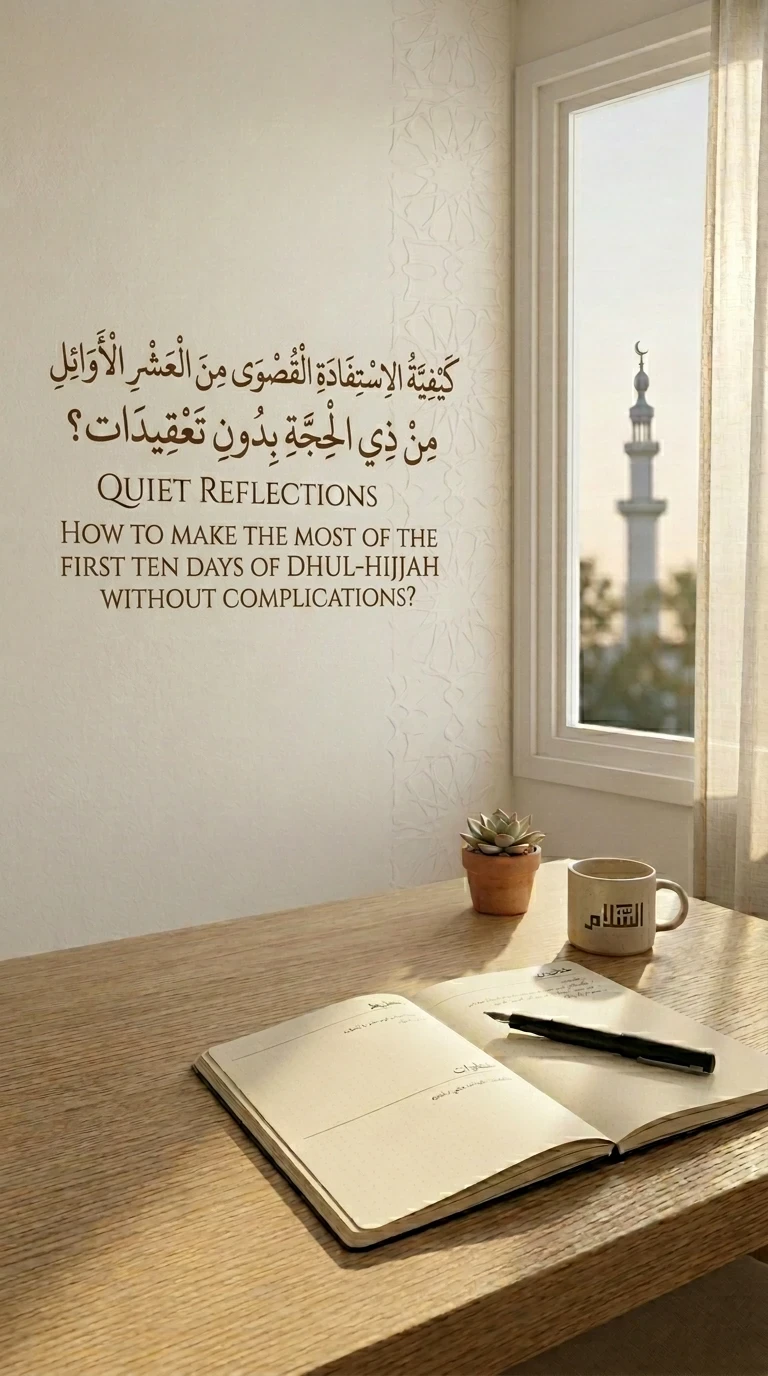 كَيْفِيَّةُ الِاسْتِفَادَةِ الْقُصْوَى مِنَ الْعَشْرِ الْأَوَائِلِ
مِنْ ذِي الْحِجَّةِ بِدُونِ تَعْقِيدَات؟
QUIET REFLECTIONS
HOW TO MAKE THE MOST OF THE
FIRST TEN DAYS OF DHUL-HIJJAH
WITHOUT COMPLICATIONS?
السَّلَام